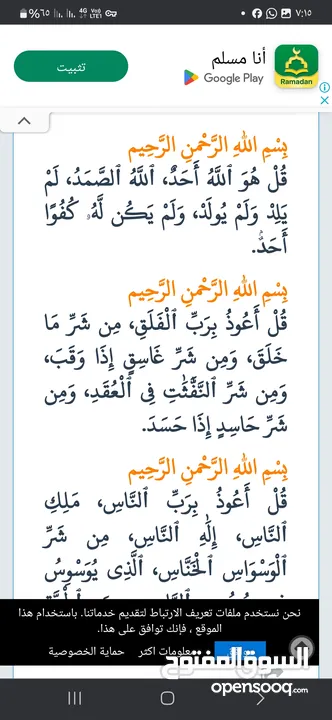 ٧:١٥
٦٥%
4G
LTE1
أنا مسلم
Google Play
Ramadan
تثبيت
بِسْمِ اللهِ الرَّحْمنِ الرَّحِيم
قُلْ هُوَ ٱللَّهُ أَحَدٌ، ٱللَّهُ ٱلصَّمَدُ، لَمْ
يَلِدْ وَلَمْ يُولَدْ، وَلَمْ يَكُن لَّهُۥ كُفُوًا
أَحَدٌۢ.
بِسْمِ اللهِ الرَّحْمنِ الرَّحِيم
قُلْ أَعُوذُ بِرَبِّ ٱلْفَلَقِ، مِن شَرِّ مَا
خَلَقَ، وَمِن شَرِّ غَاسِقٍ إِذَا وَقَبَ،
وَمِن شَرِّ ٱلنَّفَّٰثَٰتِ فِى ٱلْعُقَدِ، وَمِن
شَرِّ حَاسِدٍ إِذَا حَسَدَ.
بِسْمِ اللهِ الرَّحْمنِ الرَّحِيم
قُلْ أَعُوذُ بِرَبِّ ٱلنَّاسِ، مَلِكِ
ٱلنَّاسِ، إِلَٰهِ ٱلنَّاسِ، مِن شَرِّ
ٱلْوَسْوَاسِ ٱلْخَنَّاسِ، ٱلَّذِى يُوَسْوِسُ
نحن نستخدم ملفات تعريف الارتباط لتقديم خدماتنا. باستخدام هذا
الموقع ، فإنك توافق على هذا.
معلومات اكثر
حماية الخصوصية
السوق المفتوح
opensooq.com